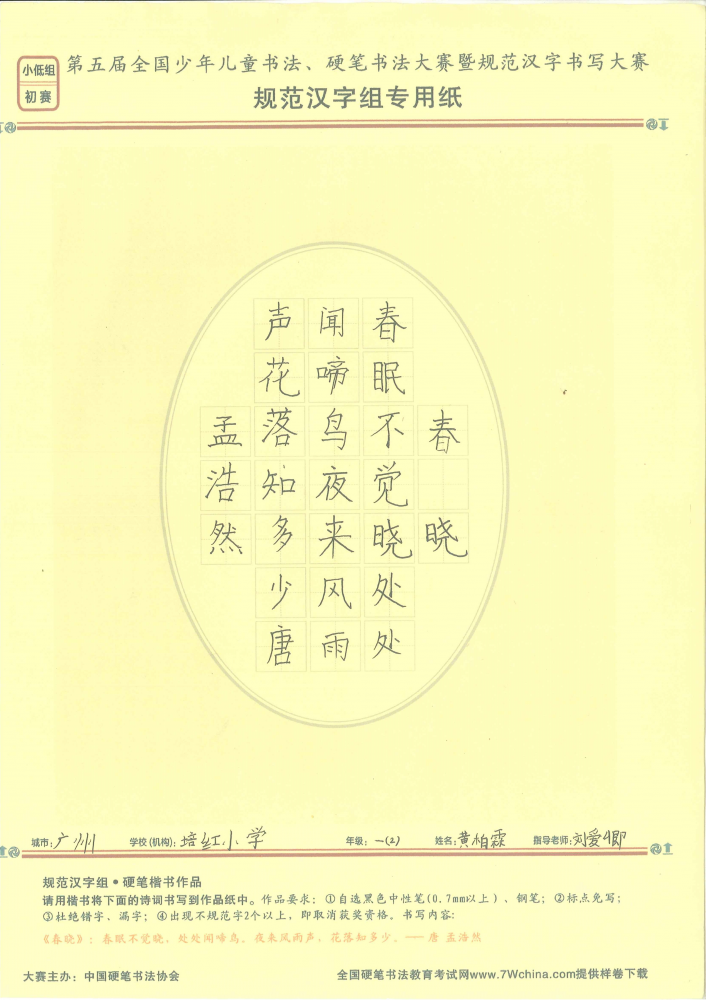 小低组
初赛
第五届全国少年儿童书法、硬笔书法大赛暨规范汉字书写大赛
规范汉字组专用纸
春晓
春眠不觉晓处处
闻啼鸟夜来风雨
声花落知多少唐
孟浩然
城市：广州 学校(机构)：培红小学 年级：一(2) 姓名：黄柏霖 指导老师：刘爱卿
规范汉字组·硬笔楷书作品
请用楷书将下面的诗词书写到作品纸中。作品要求：①自选黑色中性笔(0.7mm以上)、钢笔；②标点免写；
③杜绝错字、漏字；④出现不规范字2个以上，即取消获奖资格。书写内容：
《春晓》：春眠不觉晓，处处闻啼鸟。夜来风雨声，花落知多少。——唐 孟浩然
大赛主办：中国硬笔书法协会 全国硬笔书法教育考试网www.7Wchina.com提供样卷下载